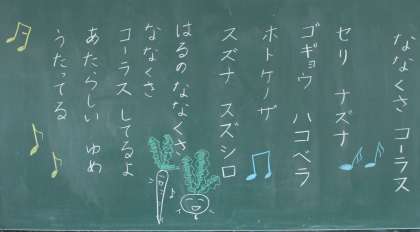 ななくさ コーラス
セリ ナズナ
ゴギョウ ハコベラ
ホトケノザ
スズナ スズシロ
はるのななくさ
ななくさ
コーラス してるよ
あたらしい ゆめ
うたってる